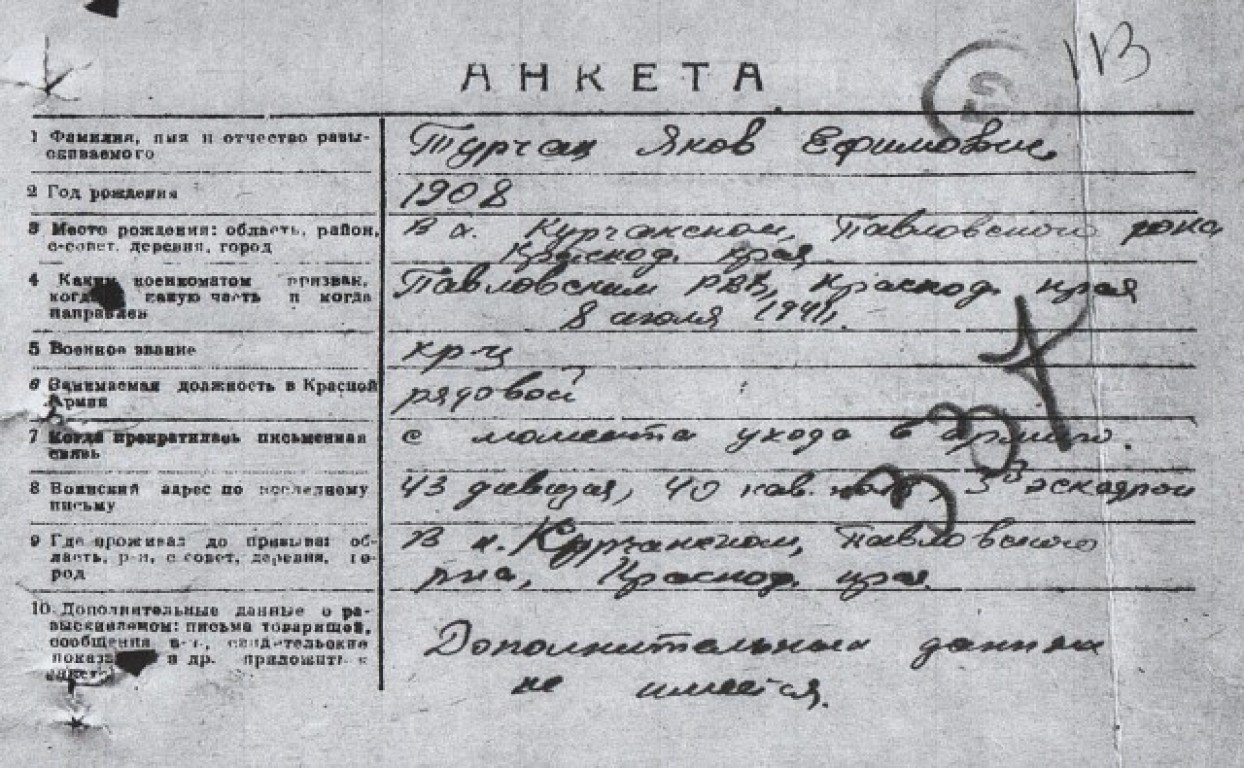 113
АНКЕТА
1 Фамилия, имя и отчество разы-
скиваемого
Турчан Яков Ефимович
2 Год рождения
1908
3 Место рождения: область, район,
с-совет, деревня, город
В х. Курчанском, Павловского рона
Краснод. края
4 Каким военкоматом призван,
когда в какую часть и когда
направлен
Павловским РВК, Краснод. края
8 июля 1941г.
5 Военное звание
кр-ц
6 Занимаемая должность в Красной
Армии
рядовой
7 Когда прекратилась письменная
связь
с момента ухода в армию.
8 Воинский адрес по последнему
письму
43 дивизия, 40 кав. полк, 3й эскадрон
9 Где проживал до призыва: об-
ласть, р-н, с совет, деревня, го-
род
В х. Курчанском, Павловского
р-на, Краснод. края
10. Дополнительные данные о ра-
зыскиваемом: письма товарищей,
сообщения в-ч, свидетельские
показания и др. приложить к
анкете
Дополнительных данных
не имеется.